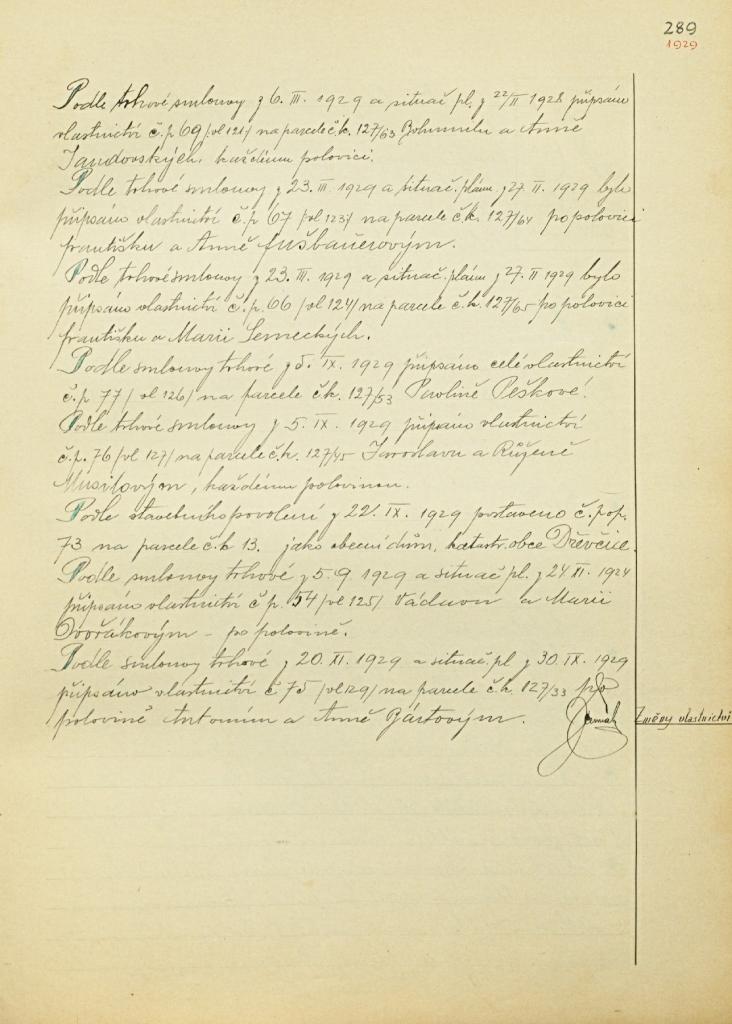 289
1929
Podle trhové smlouvy z 6. III. 1929 a situač. pl. z 22/II 1928 připsáno
vlastnictví č. p 69 /vl 121/ na parcele č.k. 127/63 Bohumilu a Anně
Jandovských, každému polovici.
Podle trhové smlouvy z 23. III. 1929 a situač. plánu z 27. II. 1929 bylo
připsáno vlastnictví č. p. 67 /vl 123/ na parcele č.k. 127/64 po polovici
Františku a Anně Fušbauerovým.
Podle trhové smlouvy z 23. III. 1929 a situač. plánu z 27. II 1929 bylo
připsáno vlastnictví č. p. 66 /vl 124/ na parcele č.k. 127/65 po polovici
Františku a Marii Semeckých.
Podle smlouvy trhové z 5. IX. 1929 připsáno celé vlastnictví
č. p 77 / vl 126/ na parcele čk. 127/53 Pavlině Peškové.
Podle trhové smlouvy z 5. IX. 1929 připsáno vlastnictví
č. p. 76 /vl 127/ na parcele č.k. 127/45 Jaroslavu a Růženě
Musilovým, každému polovinou.
Podle stavebního povolení z 22. IX. 1929 postaveno č. pop.
73 na parcele č.k 13. jako obecní dům, katastr. obce Dřevčice.
Podle smlouvy trhové z 5. 9. 1929 a situač pl. z 24 XI. 1924
připsáno vlastnictví č p. 54 /vl 125/ Václavu a Marii
Dvořákovým - po polovině.
Podle smlouvy trhové z 20. XI. 1929 a situač. pl z 30. IX. 1929
připsáno vlastnictví č. 75 /vl 129/ na parcele č.k. 127/33 po
polovině Antonínu a Anně Bártovým.
Změny vlastnictví